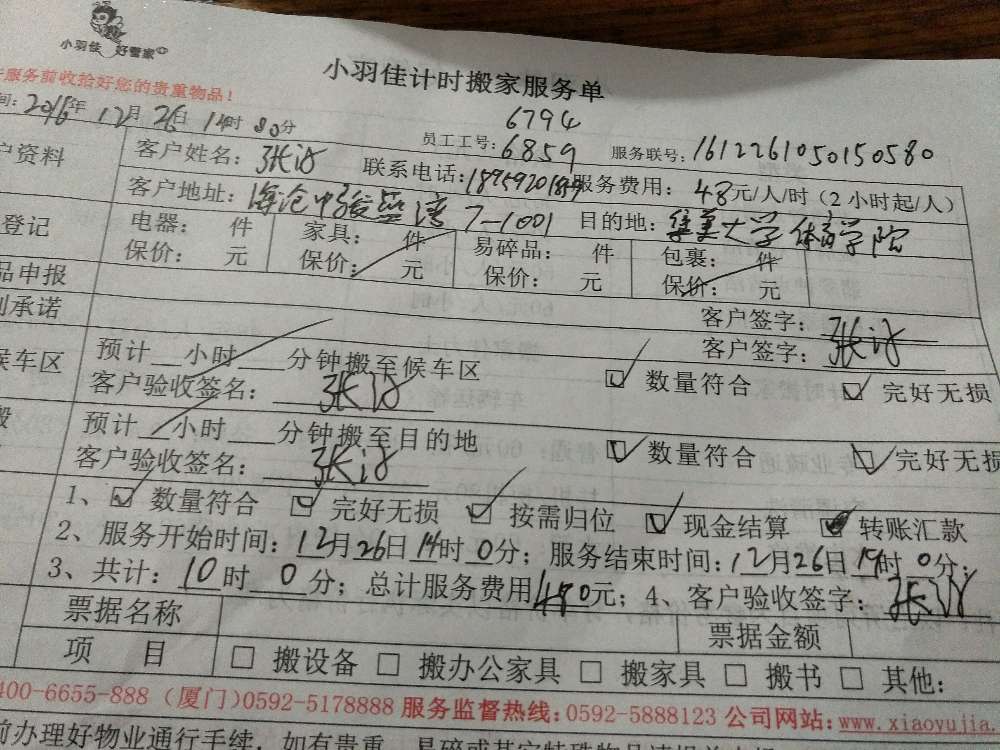 小羽佳 好管家
小羽佳计时搬家服务单
服务前收拾好您的贵重物品！
6794
间：2016年12月26日14时00分 员工工号：6859 服务联号：1612261050150580
户资料 客户姓名：张 联系电话：18959201 服务费用：48元/人/时（2小时起/人）
客户地址：海沧中骏蓝湾7-1001 目的地：集美大学体育学院
登记 电器： 件 家具： 件 易碎品： 件 包裹： 件
保价： 元 保价： 元 保价： 元 保价： 元
品申报 客户签字：张
承诺 客户签字：张
候车区 预计 小时 分钟搬至候车区 数量符合 完好无损
客户验收签名：张
搬 预计 小时 分钟搬至目的地 数量符合 完好无损
客户验收签名：张
1、 数量符合 完好无损 按需归位 现金结算 转账汇款
2、服务开始时间：12月26日14时0分；服务结束时间：12月26日19时0分；
3、共计：10时0分；总计服务费用480元；4、客户验收签字：张
票据名称 票据金额
项 目 □ 搬设备 □ 搬办公家具 □ 搬家具 □ 搬书 □ 其他：
400-6655-888（厦门）0592-5178888 服务监督热线：0592-5888123 公司网站：www.xiaoyujia.
前办理好物业通行手续，如有贵重、易碎或其它特殊物品请提前